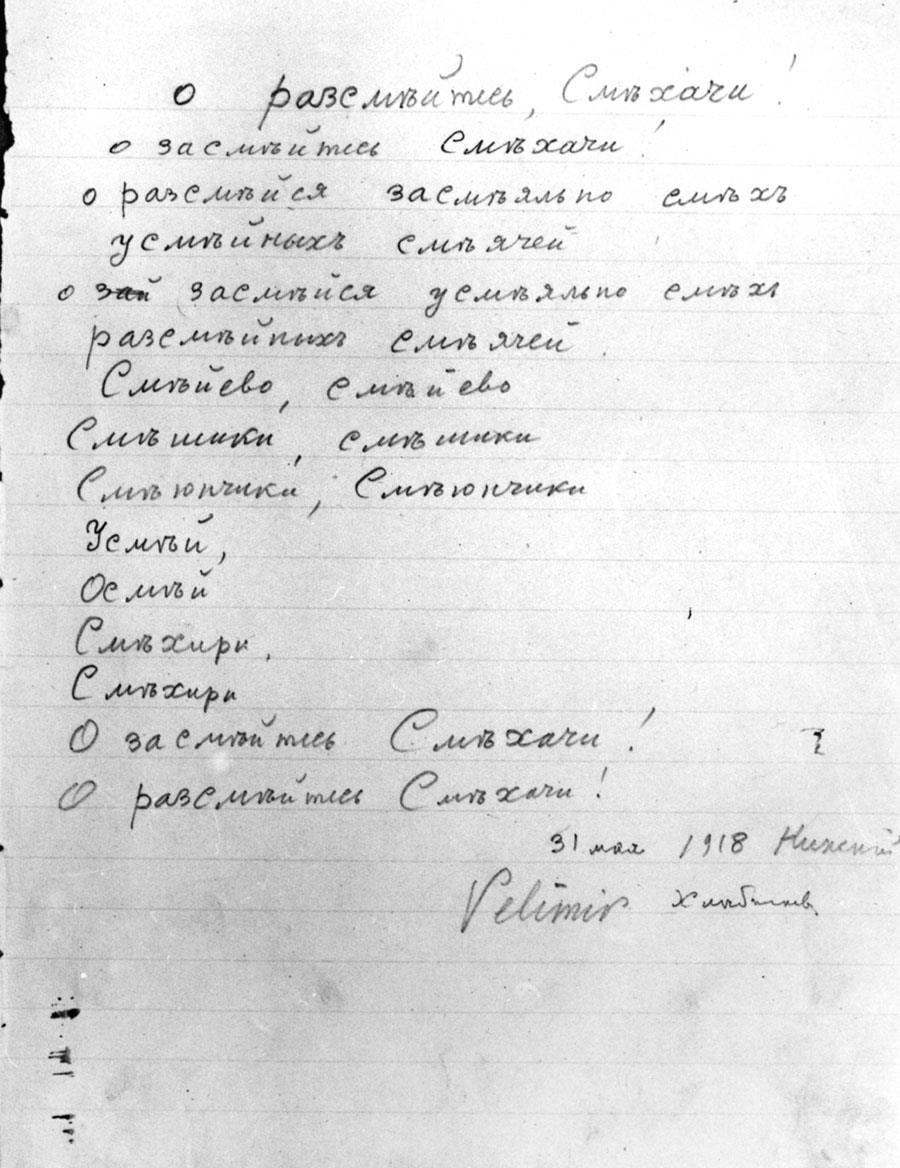 О разсмѣйтесь, Смѣхачи!
о засмѣйтесь Смѣхачи!
о разсмѣйся засмѣяльно смѣхъ
усмѣйныхъ смѣячей
о зай засмѣйся усмѣяльно смѣхъ
разсмѣйныхъ смѣячей
Смѣйево, смѣйево
Смѣшики, смѣшики
Смѣюнчики, Смѣюнчики
Усмѣй,
Осмѣй
Смѣхири,
Смѣхири
О засмѣйтесь Смѣхачи!
О разсмѣйтесь Смѣхачи!
31 мая 1918 Нижний
Velimir Хлебников